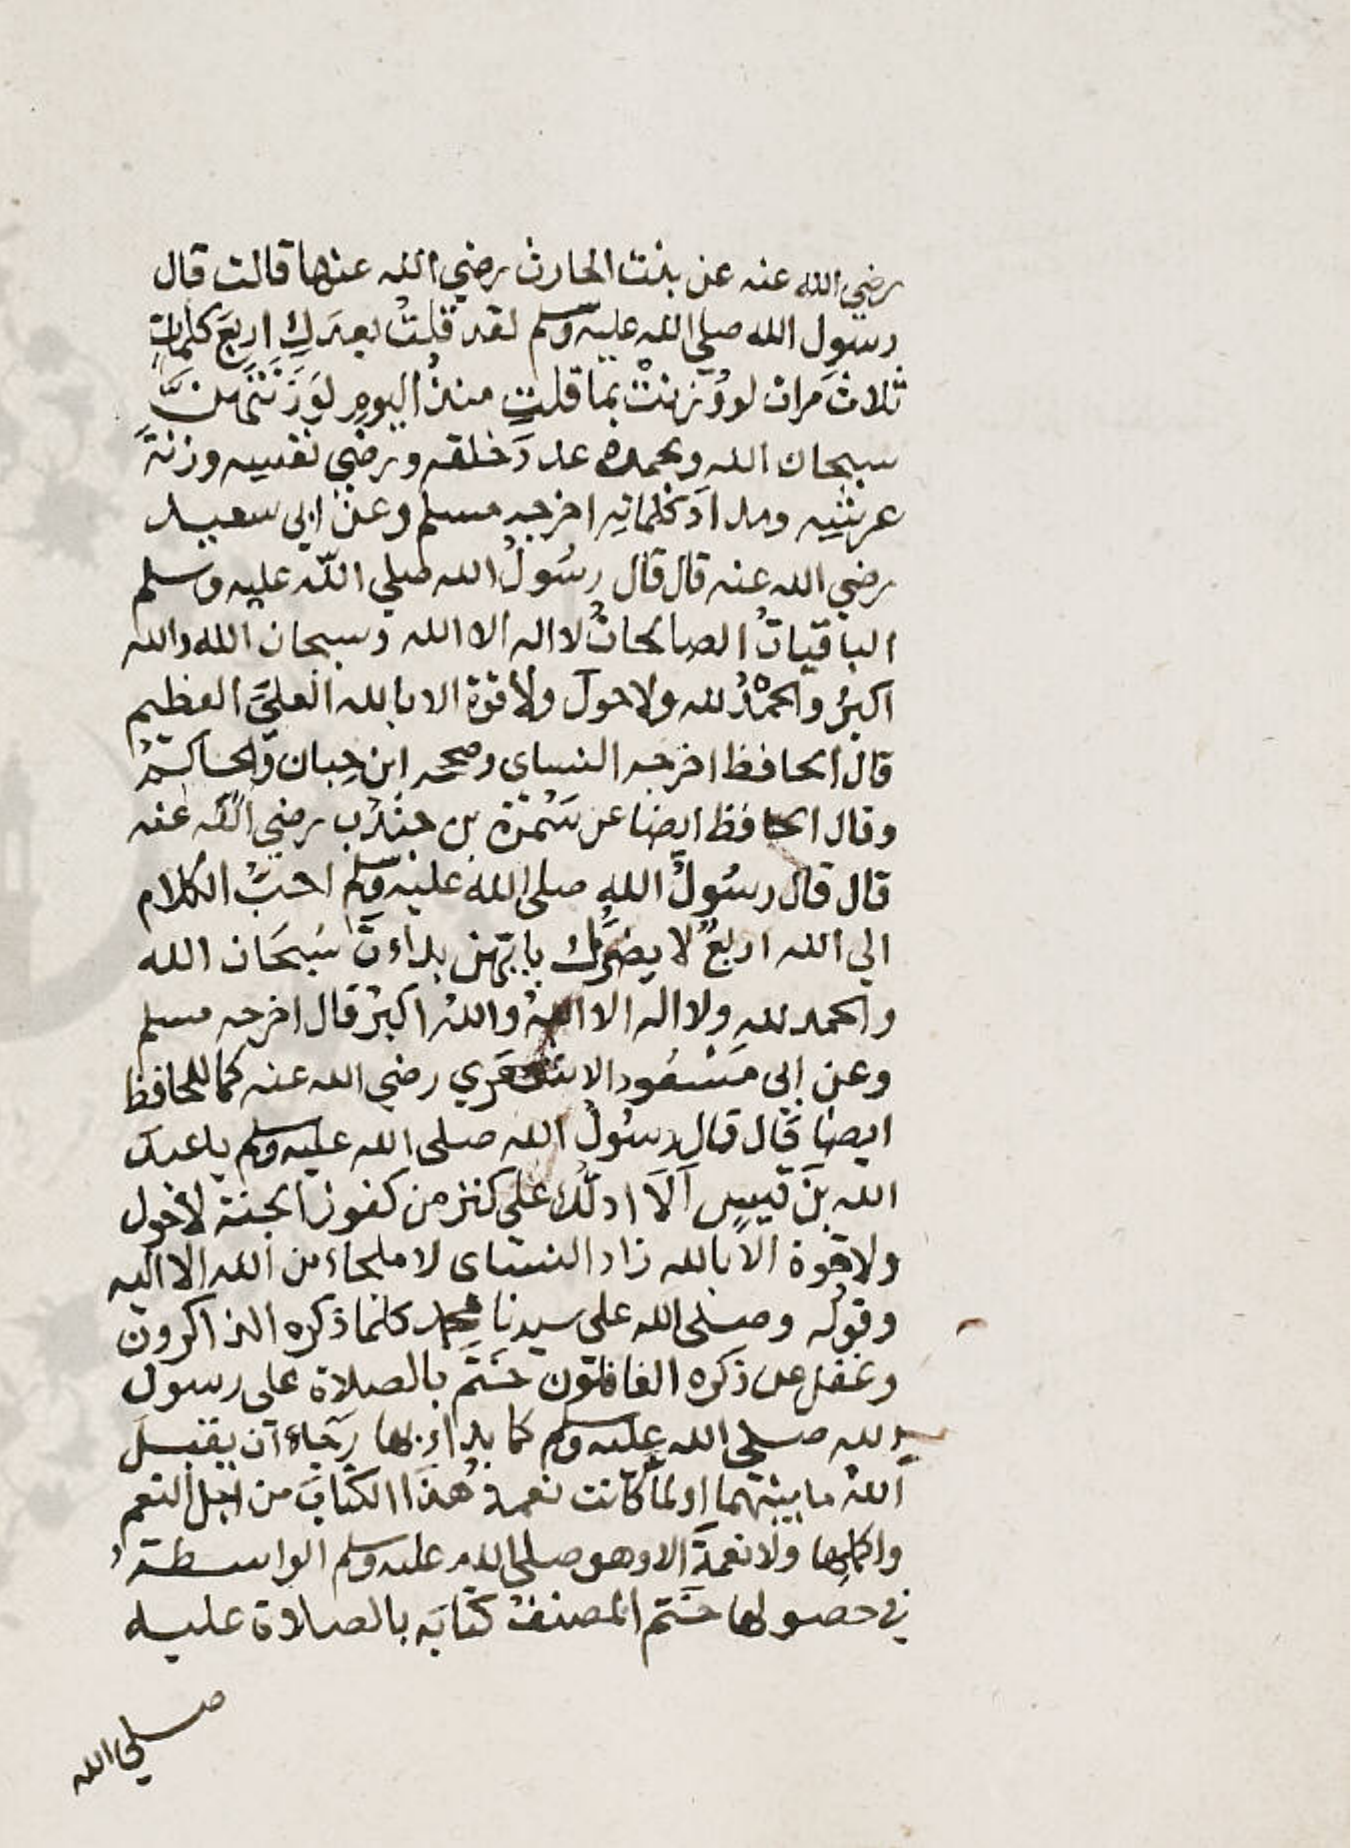 رضي الله عنه عن بنت الحارث رضي الله عنها قالت قال
رسول الله صلي الله عليه وسلم لقد قلتُ بعدَكِ اربعَ كلماتٍ
ثلاثَ مرات لو وُزِنتْ بما قلتِ منذُ اليومِ لَوَزَنَتْهُنَّ
سبحان الله وبحمده عددَ خلقه ورضي نفسِه وزنةَ
عرشِه ومدادَ كلماتِه اخرجه مسلم وعن ابي سعيد
رضي الله عنه قال قال رسُولُ الله صلي اللّه عليه وسلم
الباقياتُ الصالحاتُ لا اله الا الله وسبحان الله والله
اكبرُ والحمدُ لله ولا حولَ ولا قوة الا بالله العليّ العظيم
قال الحافظ اخرجه النساي وصححه ابن حِبان والحاكم
وقال الحافظ ايضا عن سَمُرَة بن جندُب رضي الله عنه
قال قال رسُولُ اللهِ صلى الله عليه وسلم احبُّ الكلام
الي الله اربعٌ لا يضرُّك بايّهن بدأتَ سُبحَان الله
والحمد للهِ ولا اله الا اللهُ واللهُ اكبرُ قال اخرجه مسلم
وعن ابى مَسْعُود الاشعَرَي رضي الله عنه كما للحافظ
ايضا قال قال رسُولُ الله صلى الله عليه وسلم يا عبدَ
الله بنَ قيسٍ اَلَا ادلُّك على كنز من كنوز الجنة لا حول
ولا قوة الا بالله زاد النساى لا ملجاء من الله الا اليه
وقوله وصلى الله على سيدنا محمد كلما ذكره الذاكرون
وغفل عن ذكره الغافلون ختَمَ بالصلاة على رسول
الله صلى الله عليه وسلم كما بدا بها رجاءَ ان يقبلَ
اللهُ ما بينهما او لما كانت نعمة هذا الكتابَ من اجل النعم
واكملها ولا نعمةَ الا وهو صلى الله عليه وسلم الواسطة
في حصولها ختم المصنفُ كتابَه بالصلاة عليه
صلي الله